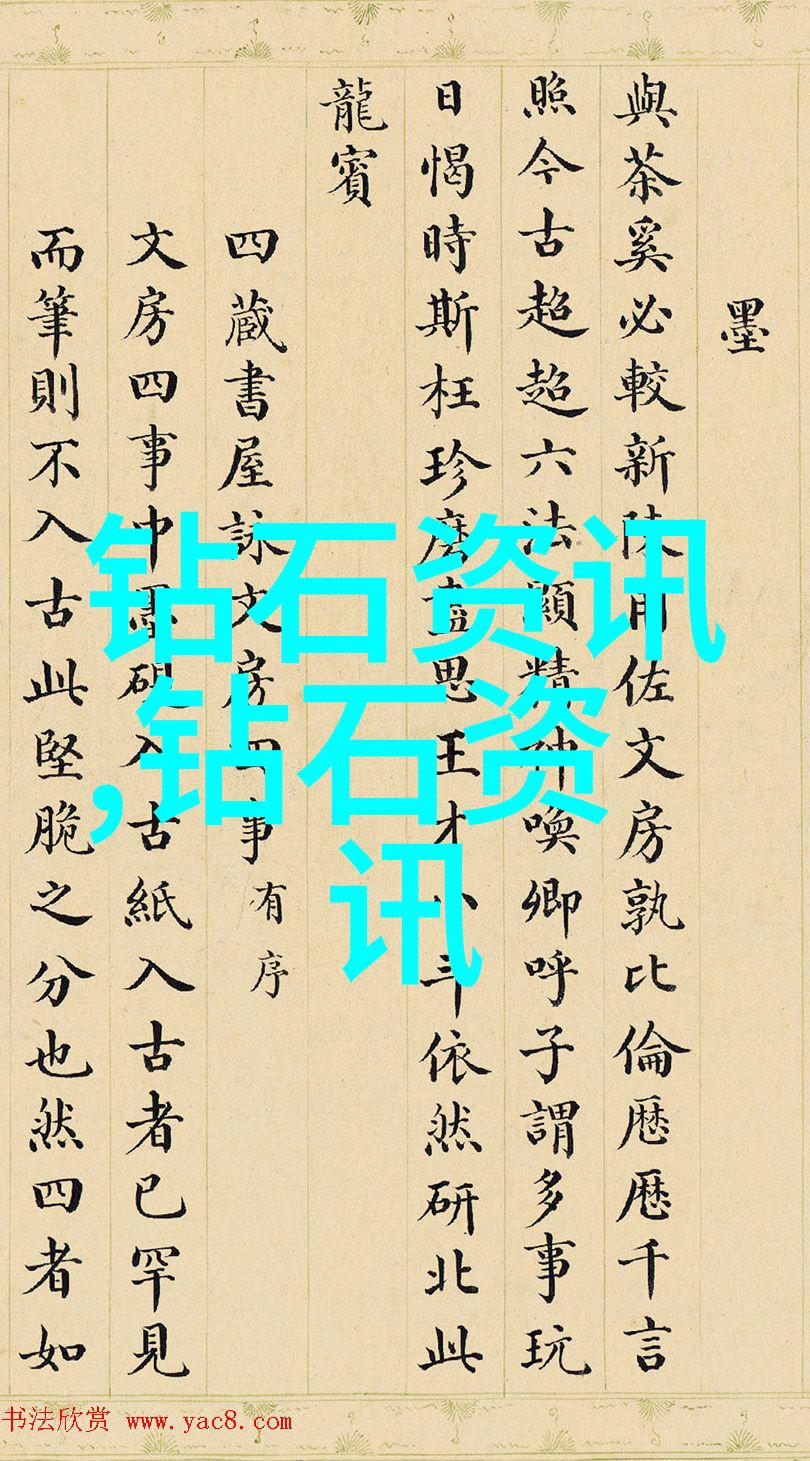 墨
與茶奚必較新陳用佐文房孰比倫厯厯千言
照今古超超六法顯精神喚卿呼子謂多事玩
日愒時斯枉珍磨盡思王才八斗依然研北此
龍賓
四蔵書屋詠文房四事有序
文房四事中墨硯入古紙入古者已罕見
而筆則不入古此堅脆之分也然四者如
钻石资讯
,钻石资
讯
书法欣赏 www.yac8.com